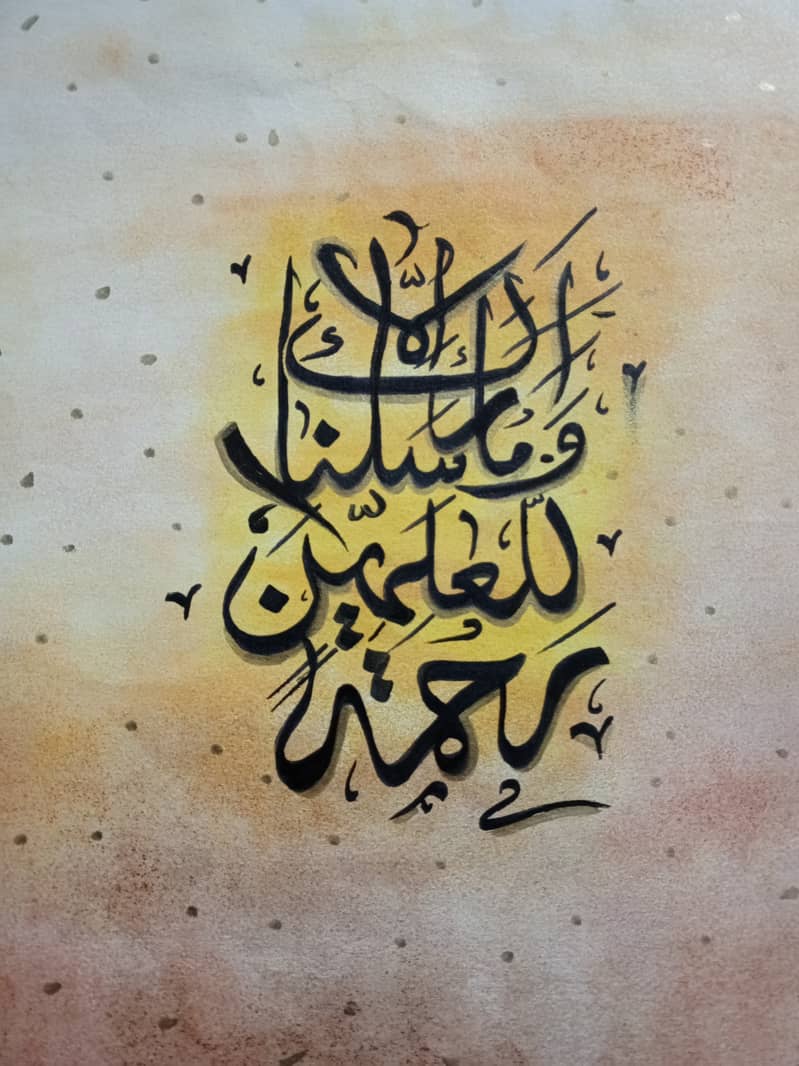 وَمَا أَرْسَلْنٰكَ إِلَّا
رَحْمَةً
لِّلْعٰلَمِيْنَ